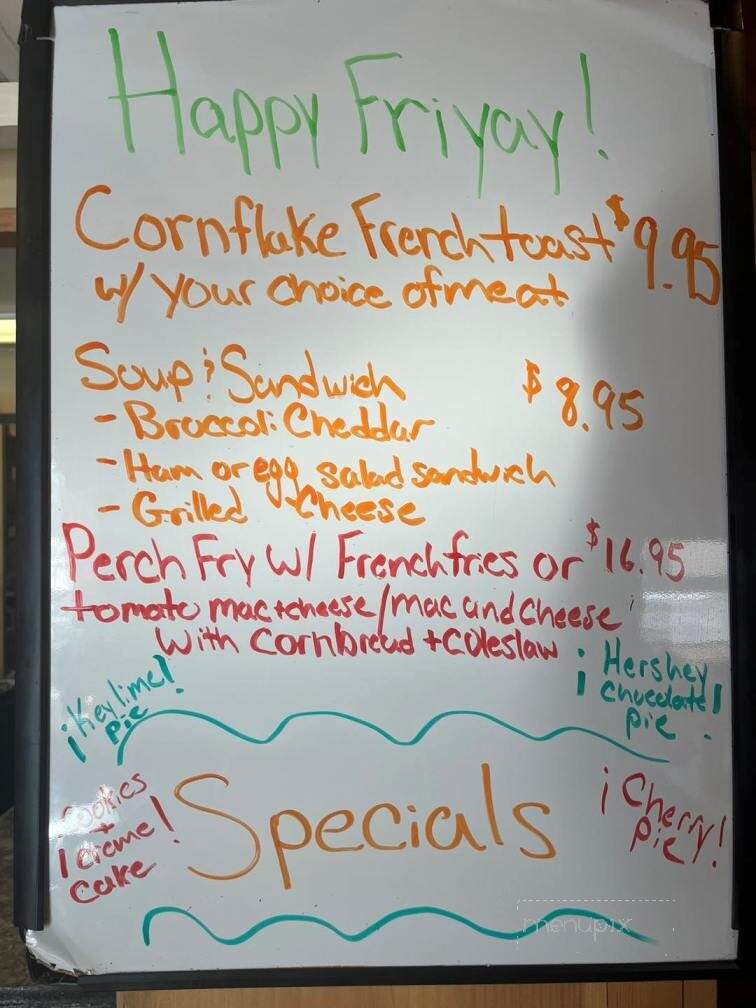 Happy Friyay!
Cornflake French toast $9.95
w/ your choice of meat
Soup & Sandwich $8.95
- Broccoli Cheddar
- Ham or egg salad sandwich
- Grilled Cheese
Perch Fry w/ French fries or $16.95
tomato mac+cheese/mac and cheese
with Cornbread + Coleslaw
¡Key lime!
pie
¡Hershey
chocolate!
pie
Cookies
+
creme!
Cake
Specials
¡Cherry
pie!
menupix